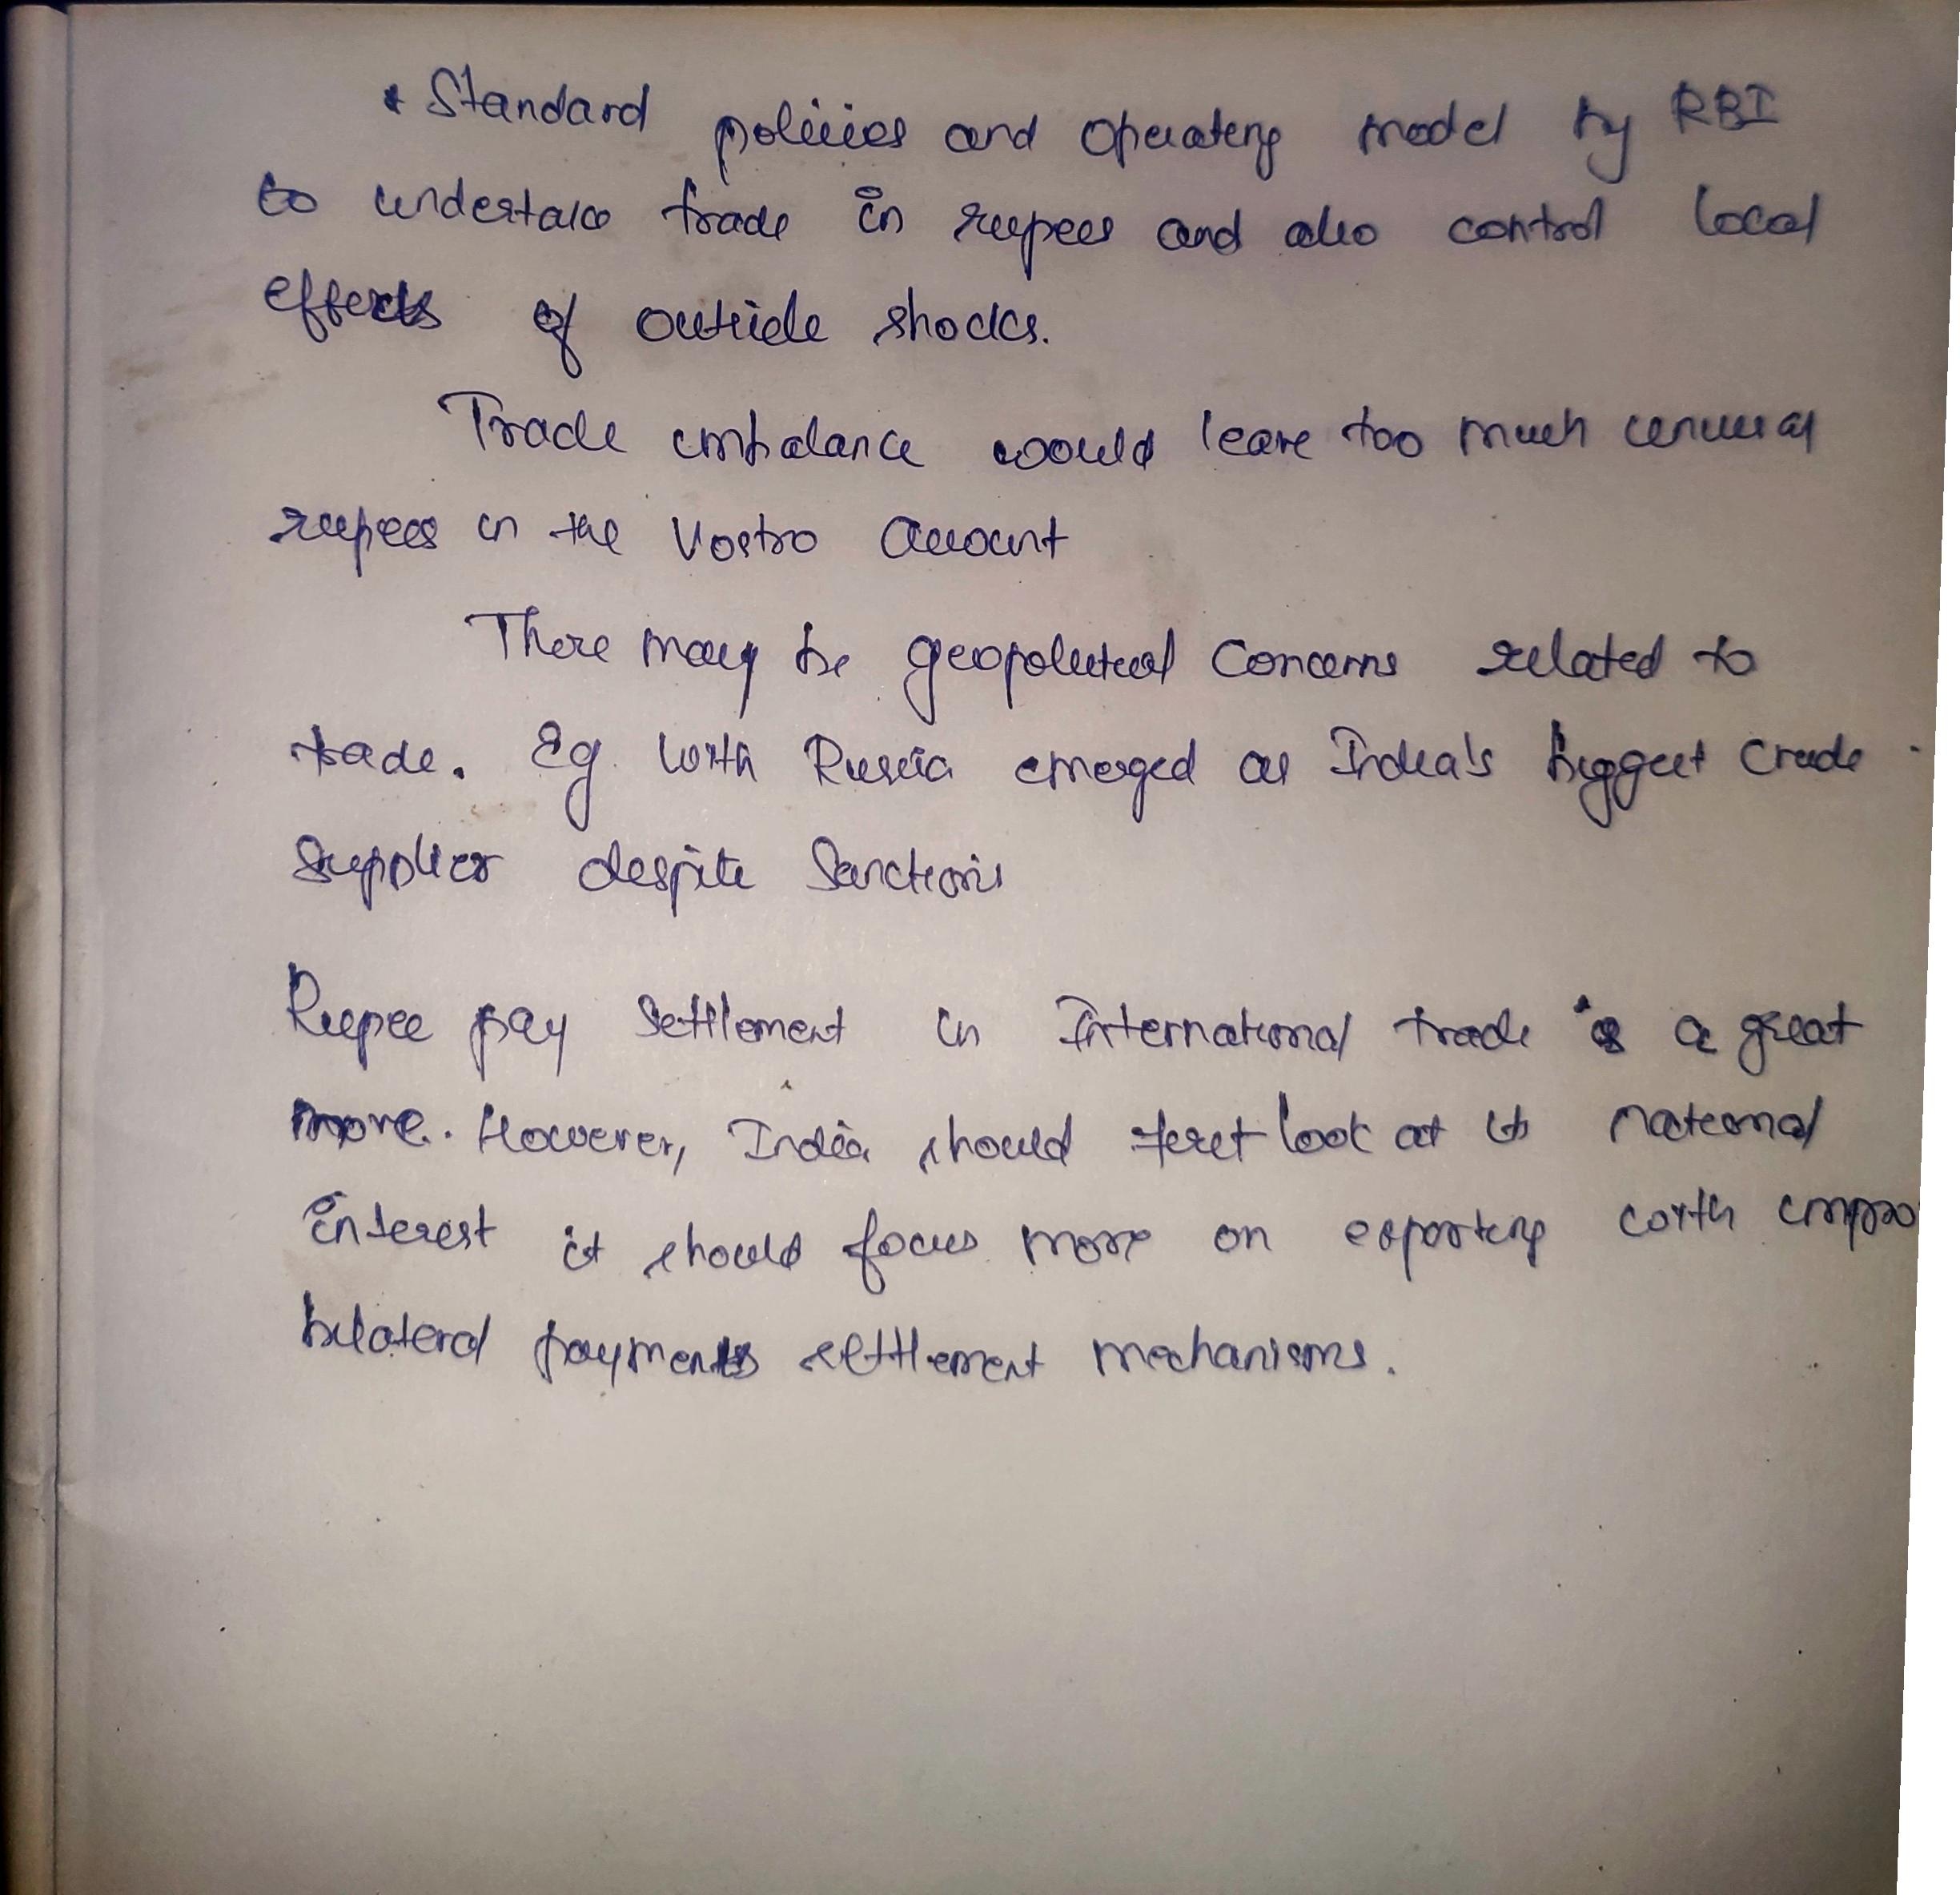 * Standard policies and operating model by RBI
to undertake trade in rupees and also control local
effects of outside shocks.
Trade imbalance would leave too much unusual
rupees in the Vostro account
There may be geopolitical concerns related to
trade. Eg with Russia emerged as India's biggest crude
supplier despite Sanctions
Rupee pay settlement in International trade is a great
move. However, India should first look at its national
interest it should focus more on exporting with impro
bilateral payments settlement mechanisms.